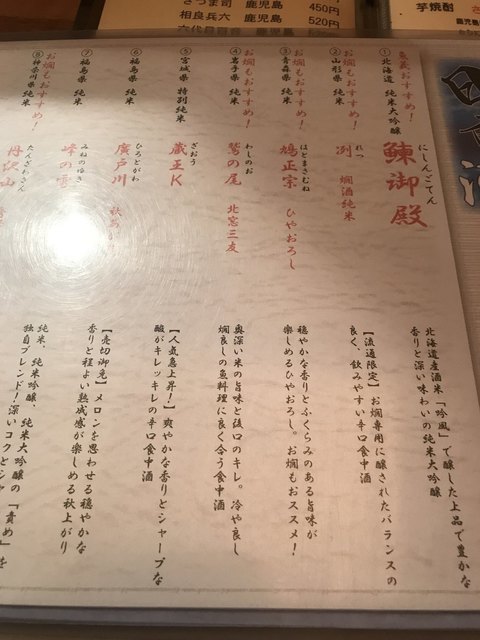 さつま司 鹿児島 450円
相良兵六 鹿児島 520円
六代目百合 鹿児島
芋焼酎
日本酒
魚蔵おすすめ!
①北海道 純米大吟醸
にしんごてん
鰊御殿
北海道産酒米「吟風」で醸した上品で豊かな
香りと深い味わいの純米大吟醸
お燗もおすすめ!
②山形県 純米
れつ
冽 燗酒純米
【流通限定】お燗専用に醸されたバランスの
良く、飲みやすい辛口食中酒
お燗もおすすめ!
③青森県 純米
はとまさむね
鳩正宗 ひやおろし
穏やかな香りとふくらみのある旨味が
楽しめるひやおろし。お燗もおススメ!
お燗もおすすめ!
④岩手県 純米
わしのお
鷲の尾 北窓三友
奥深い米の旨味と後口のキレ。冷や良し
燗良しの魚料理に良く合う食中酒
⑤宮城県 特別純米
ざおう
蔵王K
【人気急上昇!】爽やかな香りとシャープな
酸がキレッキレの辛口食中酒
⑥福島県 純米
ひろとがわ
廣戸川 秋あがり
【売切御免】メロンを思わせる穏やかな
香りと程よい熟成感が楽しめる秋上がり
⑦福島県 純米
みねのゆき
峰の雪
純米、純米吟醸、純米大吟醸の「責め」を
独自ブレンド!深いコクと
お燗もおすすめ!
⑧神奈川県 純米
たんざわさん
丹沢山